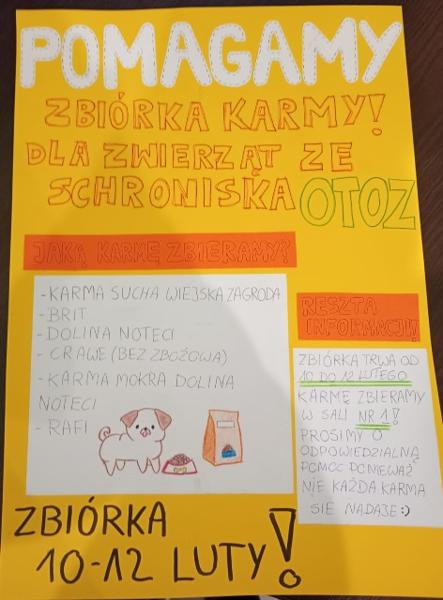 POMAGAMY
ZBIÓRKA KARMY!
DLA ZWIERZĄT ZE
SCHRONISKA OTOZ
JAKĄ KARMĘ ZBIERAMY?
-KARMA SUCHA WIEJSKA ZAGRODA
-BRIT
-DOLINA NOTECI
-CRAWE (BEZ ZBOŻOWA)
-KARMA MOKRA DOLINA
NOTECI
-RAFI
RESZTA
INFORMACJI!
ZBIÓRKA TRWA OD
10 DO 12 LUTEGO
KARMĘ ZBIERAMY
W SALI NR 1!
PROSIMY O
ODPOWIEDZIALNĄ
POMOC PONIEWAŻ
NIE KAŻDA KARMA
SIĘ NADAJE :)
ZBIÓRKA
10-12 LUTY!